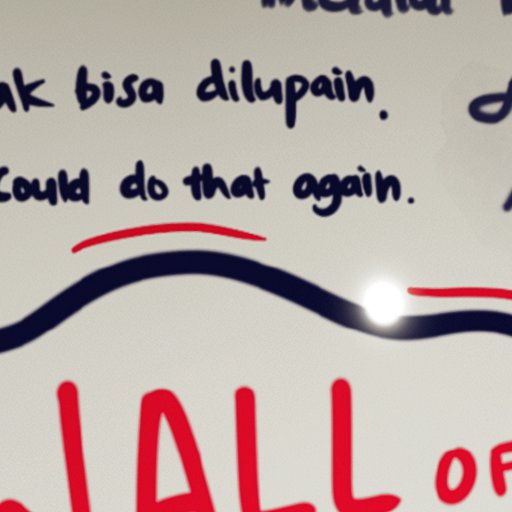 bisa dilupain.
could do that again.
WALL OF